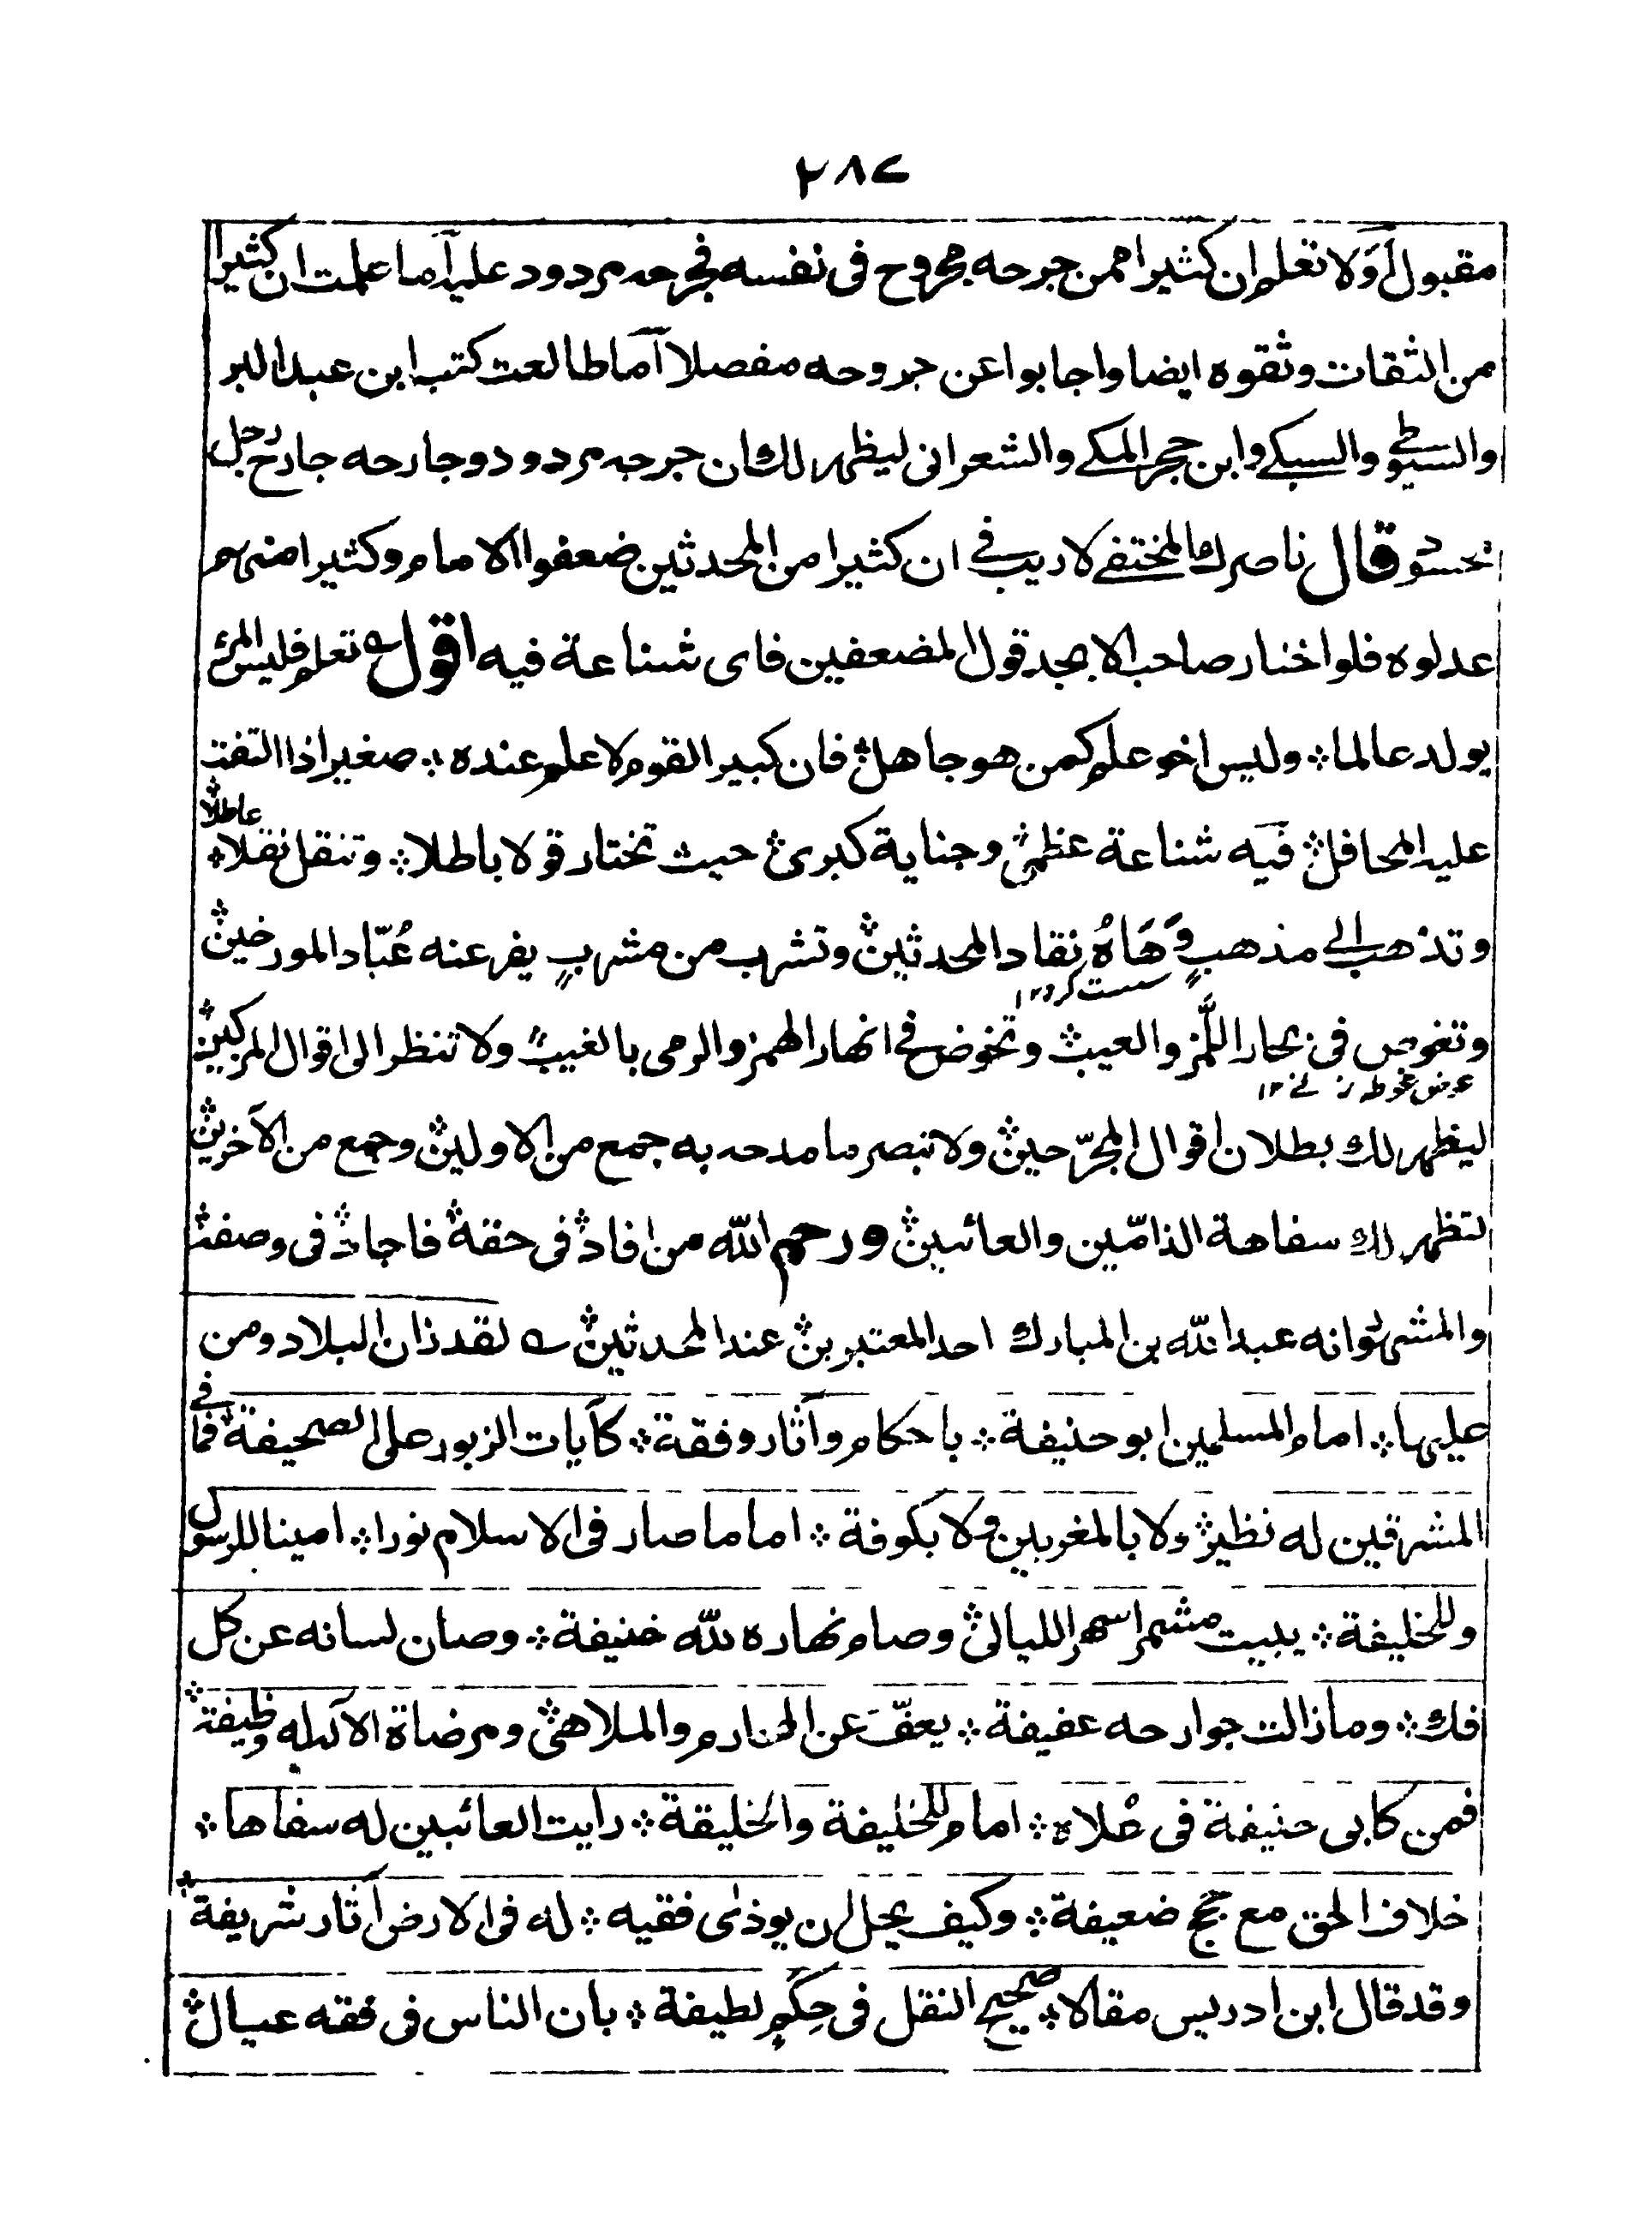 ٢٨٧
مقبول أَوَلا تعلم ان كثيرا ممن جرحه مجروح فى نفسه فجرحه مردود عليه آما علمت ان كثيرا
من الثقات وثقوه ايضا واجابوا عن جروحه مفصلا آما طالعت كتب ابن عبد البر
والسيوطي والسبكے وابن حجر المكے والشعرانى ليظهر لك ان جرحه مردود وجارحه جارح رجل
حسود قال ناصرك المختفے لا ريب فے ان كثيرا من المحدثين ضعفوا الامام وكثيرا منهم
عدلوه فلو اختار صاحب الابجد قول المضعفين فاى شناعة فيه اقول ؎ تعلم فليس المرء
يولد عالما ؞ وليس اخو علم كمن هو جاهل ؞ فان كبير القوم لا علم عنده ؞ صغير اذا التفت
عليه المحافل ؞ فيه شناعة عظمى ؞ وجناية كبرى ؞ حيث تختار قولا باطلا ؞ وتنقل نقلا عاطلا ؞
وتذهب الے مذهب وَهَاهُ نقاد المحدثين ؞ وتشرب من مشربٍ يفر عنه عُبّاد المورخين ؞
سست كرد ١٢
وتغوص فى بحار اللَّمز والعيب ؞ وتخوض فے انهار الهمز والرمى بالغيب ؞ ولا تنظر الى اقوال المزكين ؞
غوص غوطه زنے ١٢
ليظهر لك بطلان اقوال المجرّحين ؞ ولا تبصر ما مدحه به جمع من الاولين ؞ وجمع من الآخرين ؞
لتظهر لك سفاهة الذامّين والعائبين ؞ ورحم الله من افاد ؞ فى حقه ؞ فاجاد ؞ فى وصفه ؞
والمشهور انه عبد الله بن المبارك احد المعتبرين ؞ عند المحدثين ؞ ؎ لقد زان البلاد ومن
عليها ؞ امام المسلمين ابو حنيفة ؞ باحكام وآثار وفقة ؞ كآيات الزبور على الصحيفة ؞ فما فے
المشرقين له نظير ؞ ولا بالمغربين ولا بكوفة ؞ اماما صار فى الاسلام نورا ؞ امينا للرسول
وللخليفة ؞ يبيت مشمرا سهر الليالى ؞ وصام نهاره لله خنيفة ؞ وصان لسانه عن كل
فك ؞ وما زالت جوارحه عفيفة ؞ يعفّ عن المحارم والملاهى ؞ ومرضاة الآله له وظيفة ؞
فمن كابى حنيفة فى عُلاه ؞ امام للخليفة والخليقة ؞ رايت العائبين له سفاها ؞
خلاف الحق مع حجج ضعيفة ؞ وكيف يحل ان يوذى فقيه ؞ له فى الارض آثار شريفة ؞
وقد قال ابن ادريس مقالا ؞ صحيح النقل فى حِكَم لطيفة ؞ بان الناس فى فقه عيال ؞